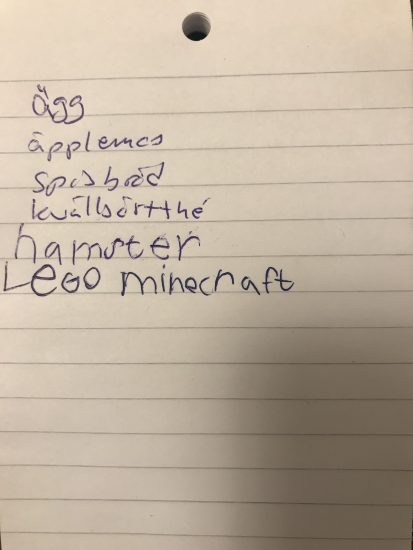 ägg
äpplemos
spisbröd
kvällsörtthé
hamster
LEGO minecraft